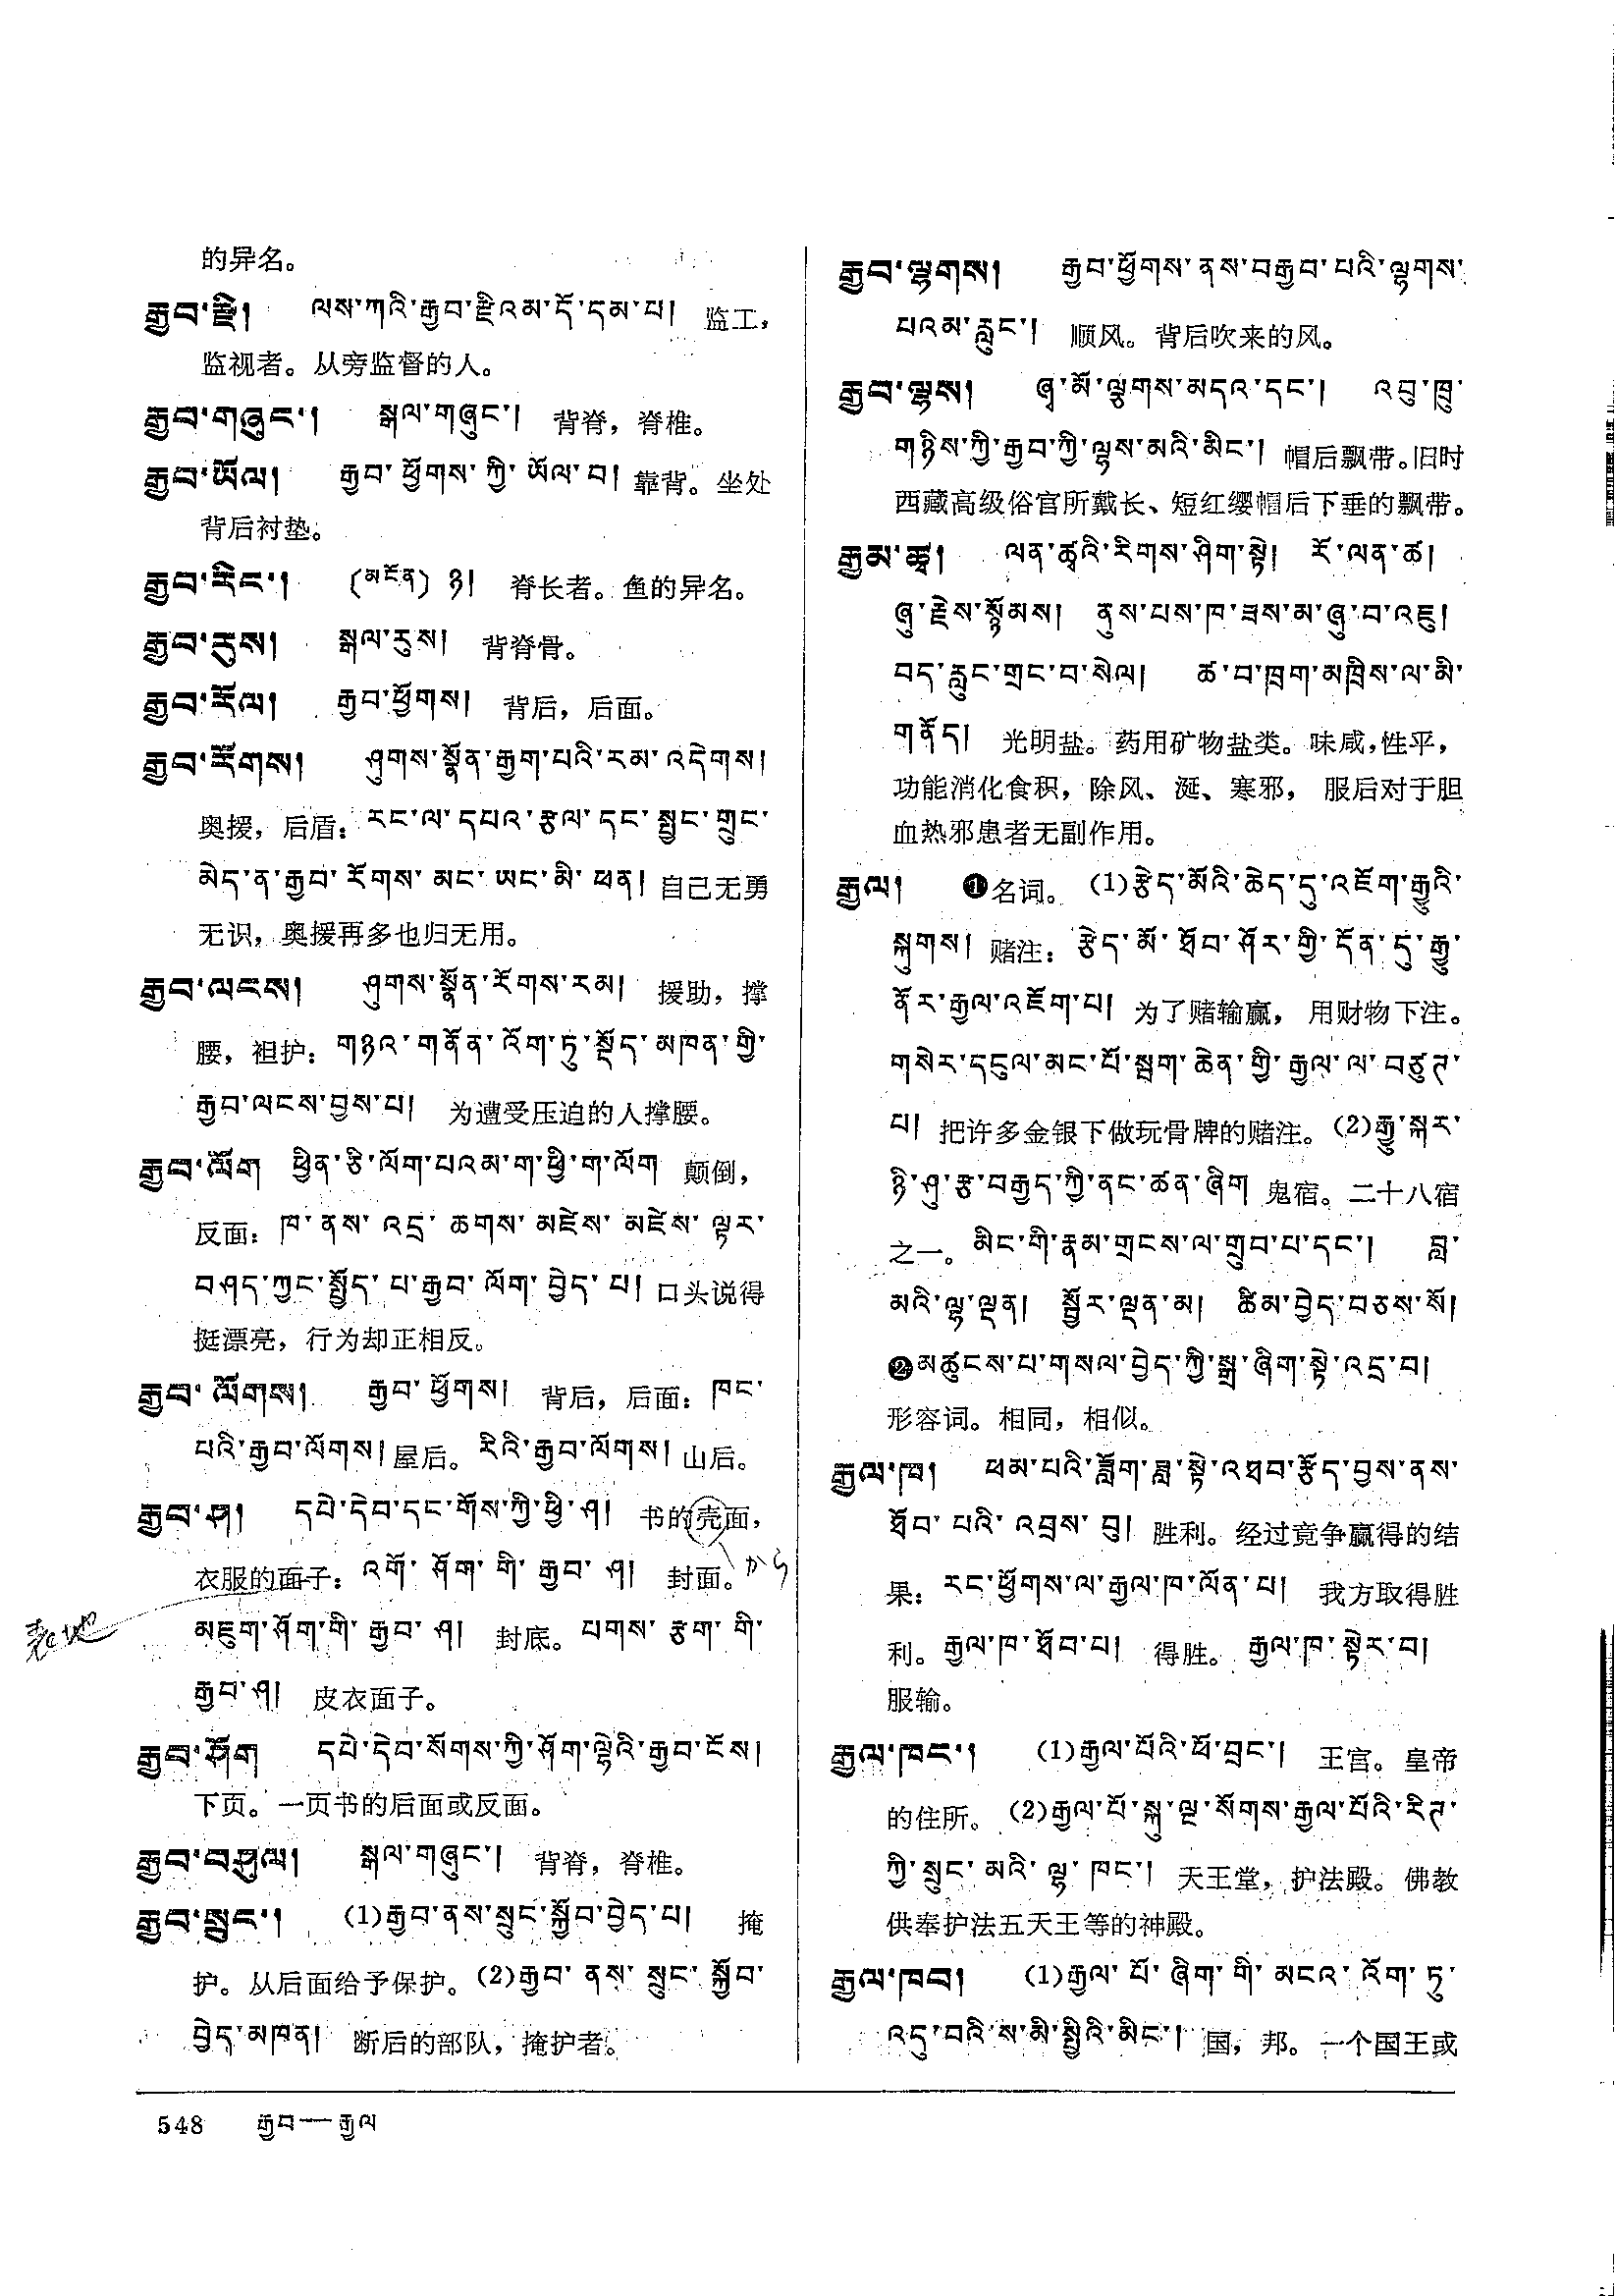 的异名。
རྒྱབ་རྫི། ལས་ཀའི་རྒྱབ་རྫིའམ་དོ་དམ་པ། 监工，
监视者。从旁监督的人。
རྒྱབ་གཞུང་། སྒལ་གཞུང་། 背脊，脊椎。
རྒྱབ་ཡོལ། རྒྱབ་ཕྱོགས་ཀྱི་ཡོལ་བ། 靠背。坐处
背后衬垫。
རྒྱབ་རིང་། (མངོན) ཉ། 脊长者。鱼的异名。
རྒྱབ་རུས། སྒལ་རུས། 背脊骨。
རྒྱབ་རོལ། རྒྱབ་ཕྱོགས། 背后，后面。
རྒྱབ་རོགས། ཤུགས་སྣོན་རྒྱག་པའི་རམ་འདེགས།
奥援，后盾：རང་ལ་དཔའ་རྩལ་དང་སྤྱང་གྲུང་
མེད་ན་རྒྱབ་རོགས་མང་ཡང་མི་ཕན། 自己无勇
无识，奥援再多也归无用。
རྒྱབ་ལངས། ཤུགས་སྣོན་རོགས་རམ། 援助，撑
腰，袒护：གཉའ་གནོན་འོག་ཏུ་སྡོད་མཁན་གྱི་
རྒྱབ་ལངས་བྱས་པ། 为遭受压迫的人撑腰。
རྒྱབ་ལོག ཕྱིན་ཅི་ལོག་པའམ་ག་ཕྱི་ག་ལོག 颠倒，
反面：ཁ་ནས་འདྲ་ཆགས་མཛེས་མཛེས་ལྟར་
བཤད་ཀྱང་སྤྱོད་པ་རྒྱབ་ལོག་བྱེད་པ། 口头说得
挺漂亮，行为却正相反。
རྒྱབ་ལོགས། རྒྱབ་ཕྱོགས། 背后，后面：ཁང་
པའི་རྒྱབ་ལོགས། 屋后。རིའི་རྒྱབ་ལོགས། 山后。
རྒྱབ་ཤ། དཔེ་དེབ་དང་གོས་ཀྱི་ཕྱི་ཤ། 书的壳面，
衣服的面子：འགོ་ཤོག་གི་རྒྱབ་ཤ། 封面。
མཇུག་ཤོག་གི་རྒྱབ་ཤ། 封底。པགས་རྩག་གི་
རྒྱབ་ཤ། 皮衣面子。
རྒྱབ་ཤོག དཔེ་དེབ་སོགས་ཀྱི་ཤོག་ལྷེའི་རྒྱབ་ངོས།
下页。一页书的后面或反面。
རྒྱབ་བཤུལ། སྒལ་གཞུང་། 背脊，脊椎。
རྒྱབ་སྲུང་། (1)རྒྱབ་ནས་སྲུང་སྐྱོབ་བྱེད་པ། 掩
护。从后面给予保护。(2)རྒྱབ་ནས་སྲུང་སྐྱོབ་
བྱེད་མཁན། 断后的部队，掩护者。
རྒྱབ་ལྷགས། རྒྱབ་ཕྱོགས་ནས་བརྒྱབ་པའི་ལྷགས་
པའམ་རླུང་། 顺风。背后吹来的风。
རྒྱབ་ལྷས། ཞྭ་མོ་ལྕགས་མདའ་དང་། འབུ་ཁྲུ་
གཉིས་ཀྱི་རྒྱབ་ཀྱི་ལྷས་མའི་མིང་། 帽后飘带。旧时
西藏高级俗官所戴长、短红缨帽后下垂的飘带。
རྒྱམ་ཚྭ། ལན་ཚྭའི་རིགས་ཤིག་སྟེ། རོ་ལན་ཚ།
ཞུ་རྗེས་སྙོམས། ནུས་པས་ཁ་ཟས་མ་ཞུ་བ་འཇུ།
བད་རླུང་གྲང་བ་སེལ། ཚ་བ་ཁྲག་མཁྲིས་ལ་མི་
གནོད། 光明盐。药用矿物盐类。味咸，性平，
功能消化食积，除风、涎、寒邪，服后对于胆
血热邪患者无副作用。
རྒྱལ། ❶名词。(1)རྩེད་མོའི་ཆེད་དུ་འཇོག་རྒྱུའི་
སྐུགས། 赌注：རྩེད་མོ་ཐོབ་ཤོར་གྱི་དོན་དུ་རྒྱུ་
ནོར་རྒྱལ་འཇོག་པ། 为了赌输赢，用财物下注。
གསེར་དངུལ་མང་པོ་སྦག་ཆེན་གྱི་རྒྱལ་ལ་བཙུཊ་
པ། 把许多金银下做玩骨牌的赌注。(2)རྒྱུ་སྐར་
ཉི་ཤུ་རྩ་བརྒྱད་ཀྱི་ནང་ཚན་ཞིག 鬼宿。二十八宿
之一。མིང་གི་རྣམ་གྲངས་ལ་གྲུབ་པ་དང་། བླ་
མའི་ལྷ་ལྡན། སྦྱོར་ལྡན་མ། ཚིམ་བྱེད་བཅས་སོ།
❷མཚུངས་པ་གསལ་བྱེད་ཀྱི་སྒྲ་ཞིག་སྟེ་འདྲ་བ།
形容词。相同，相似。
རྒྱལ་ཁ། ཕམ་པའི་ཟློག་ཟླ་སྟེ་འཐབ་རྩོད་བྱས་ནས་
ཐོབ་པའི་འབྲས་བུ། 胜利。经过竞争赢得的结
果：རང་ཕྱོགས་ལ་རྒྱལ་ཁ་ལོན་པ། 我方取得胜
利。རྒྱལ་ཁ་ཐོབ་པ། 得胜。རྒྱལ་ཁ་སྟེར་བ།
服输。
རྒྱལ་ཁང་། (1)རྒྱལ་པོའི་ཕོ་བྲང་། 王宫。皇帝
的住所。(2)རྒྱལ་པོ་སྐུ་ལྔ་སོགས་རྒྱལ་པོའི་རིཊ་
ཀྱི་སྲུང་མའི་ལྷ་ཁང་། 天王堂，护法殿。佛教
供奉护法五天王等的神殿。
རྒྱལ་ཁབ། (1)རྒྱལ་པོ་ཞིག་གི་མངའ་འོག་ཏུ་
འདུ་བའི་ས་མི་སྤྱིའི་མིང་། 国，邦。一个国王或
548 རྒྱབ—རྒྱལ